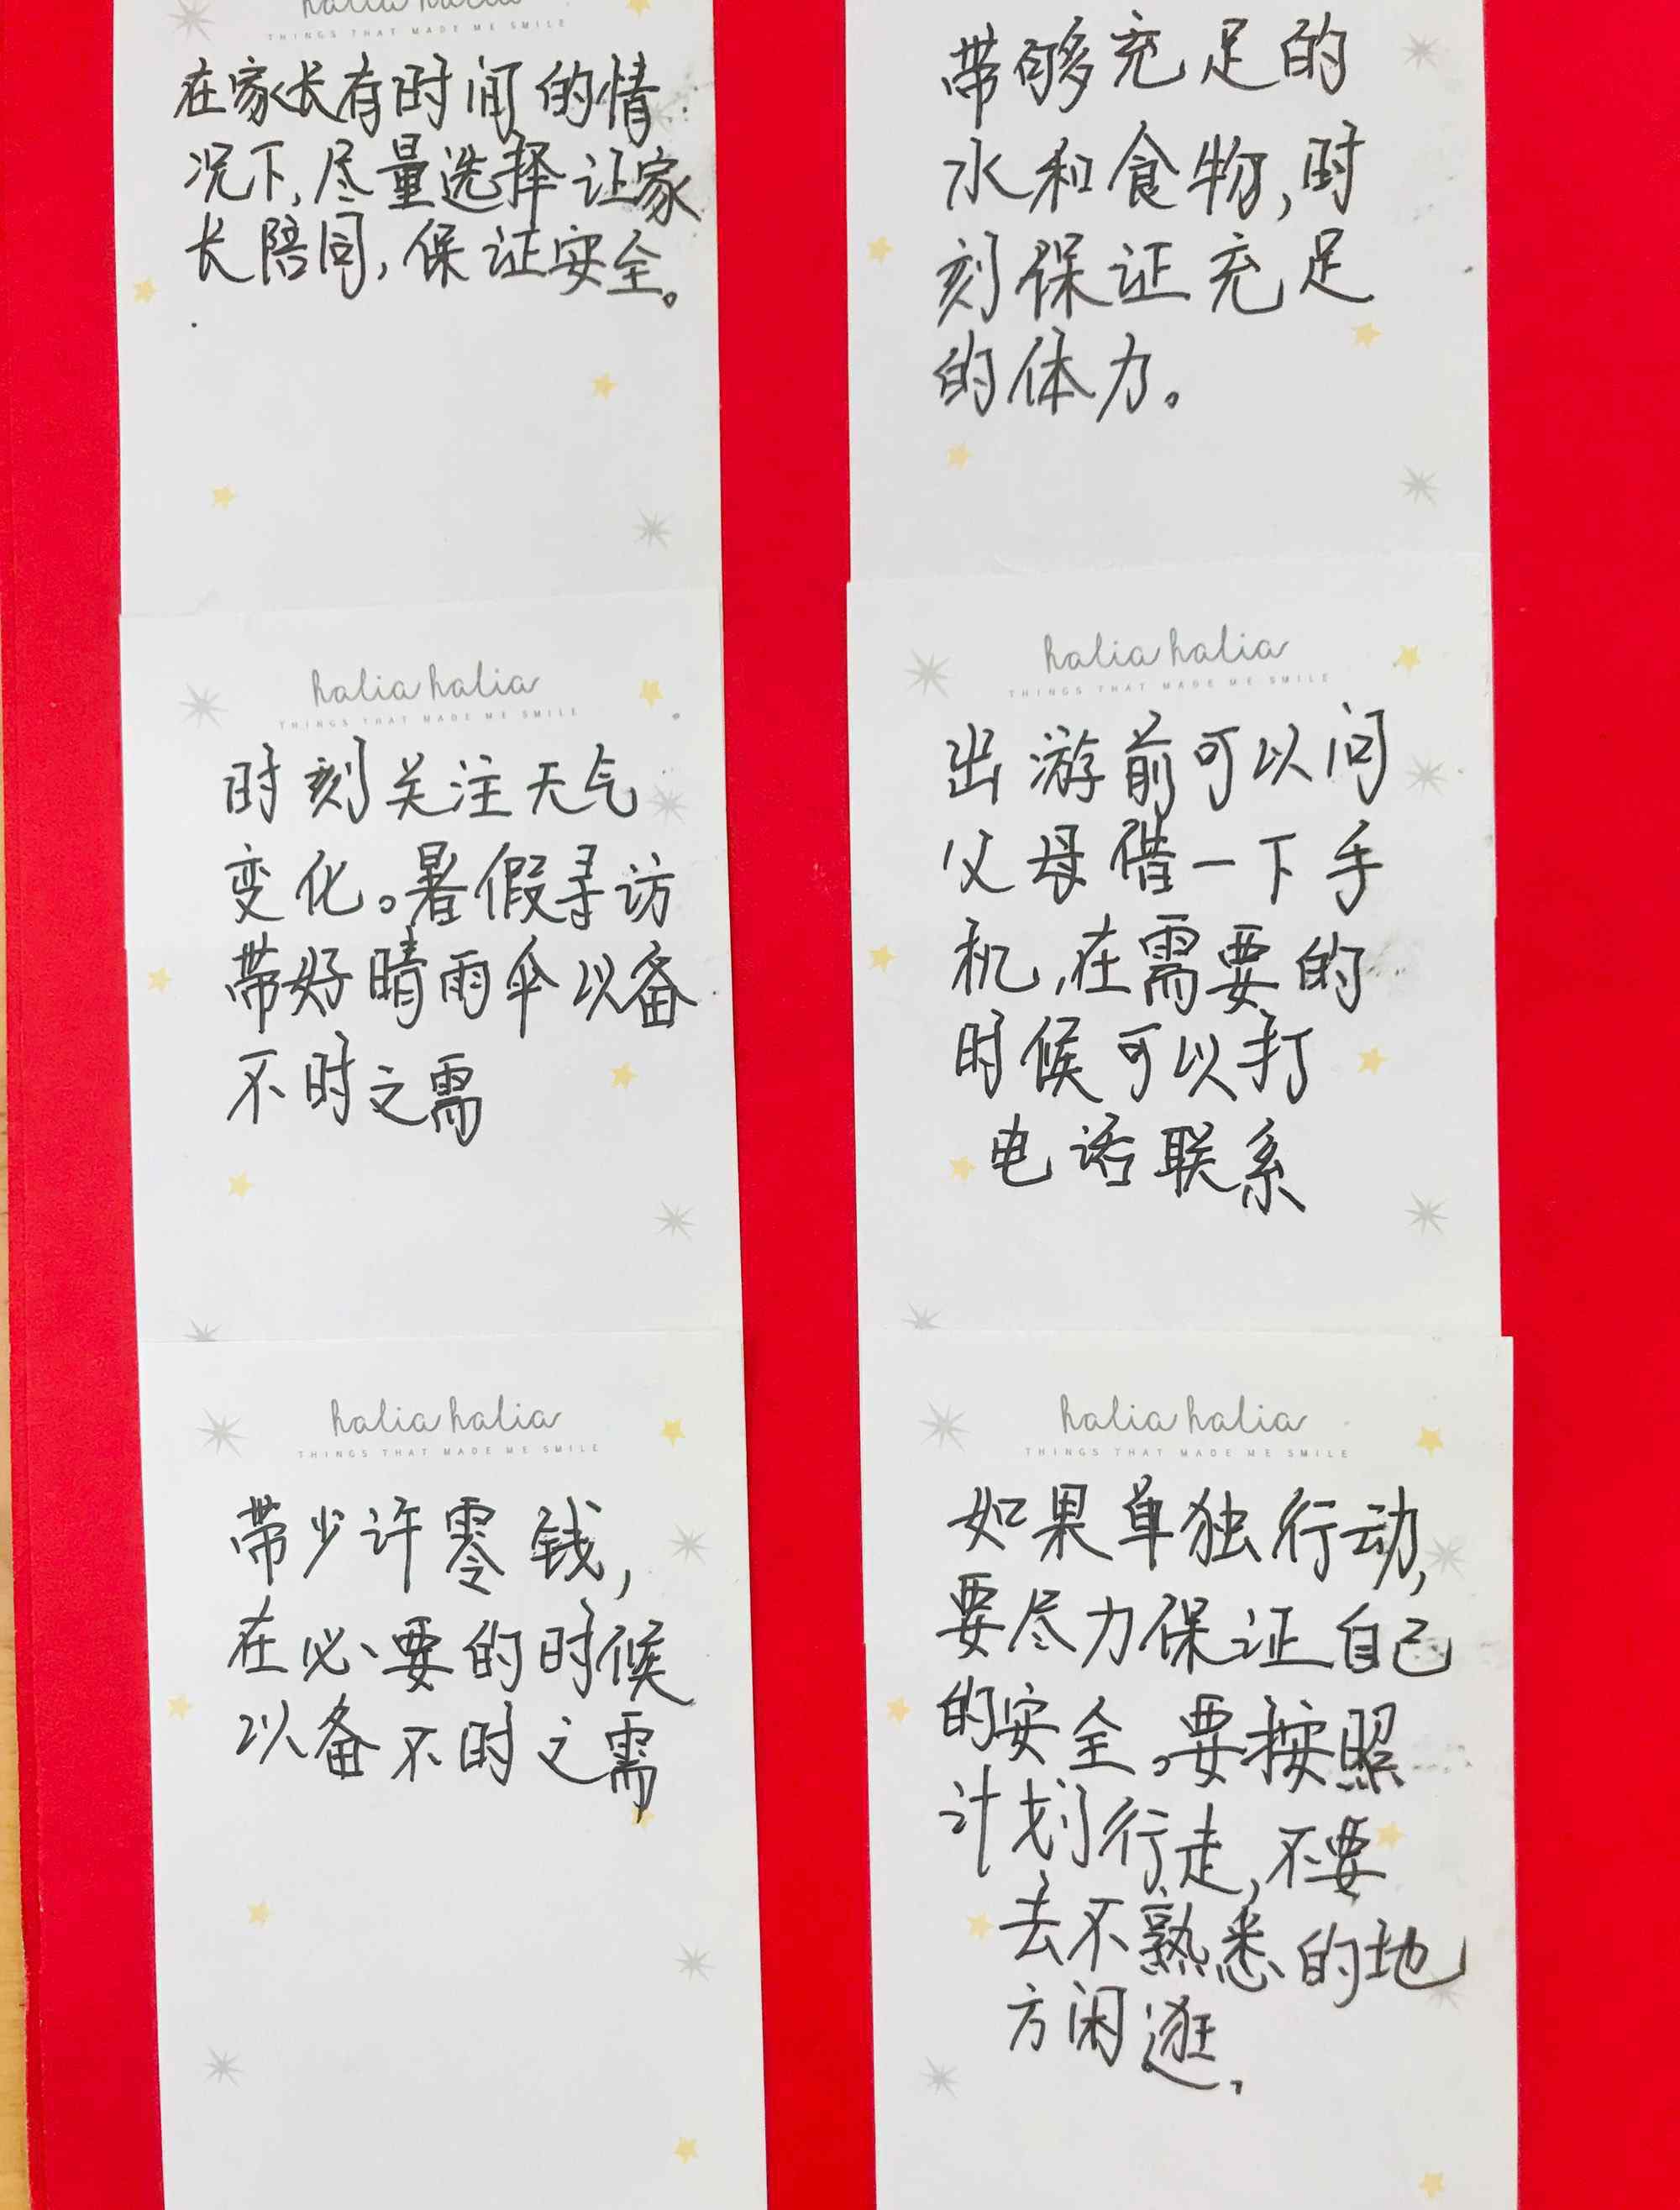 halia halia
THINGS THAT MADE ME SMILE
在家长有时间的情
况下,尽量选择让家
长陪同,保证安全。
带够充足的
水和食物,时
刻保证充足
的体力。
halia halia
THINGS THAT MADE ME SMILE
时刻关注天气
变化。暑假寻访
带好晴雨伞以备
不时之需
halia halia
THINGS THAT MADE ME SMILE
出游前可以问
父母借一下手
机,在需要的
时候可以打
电话联系
halia halia
THINGS THAT MADE ME SMILE
带少许零钱,
在必要的时候
以备不时之需
halia halia
THINGS THAT MADE ME SMILE
如果单独行动,
要尽力保证自己
的安全。要按照
计划行走,不要
去不熟悉的地
方闲逛,